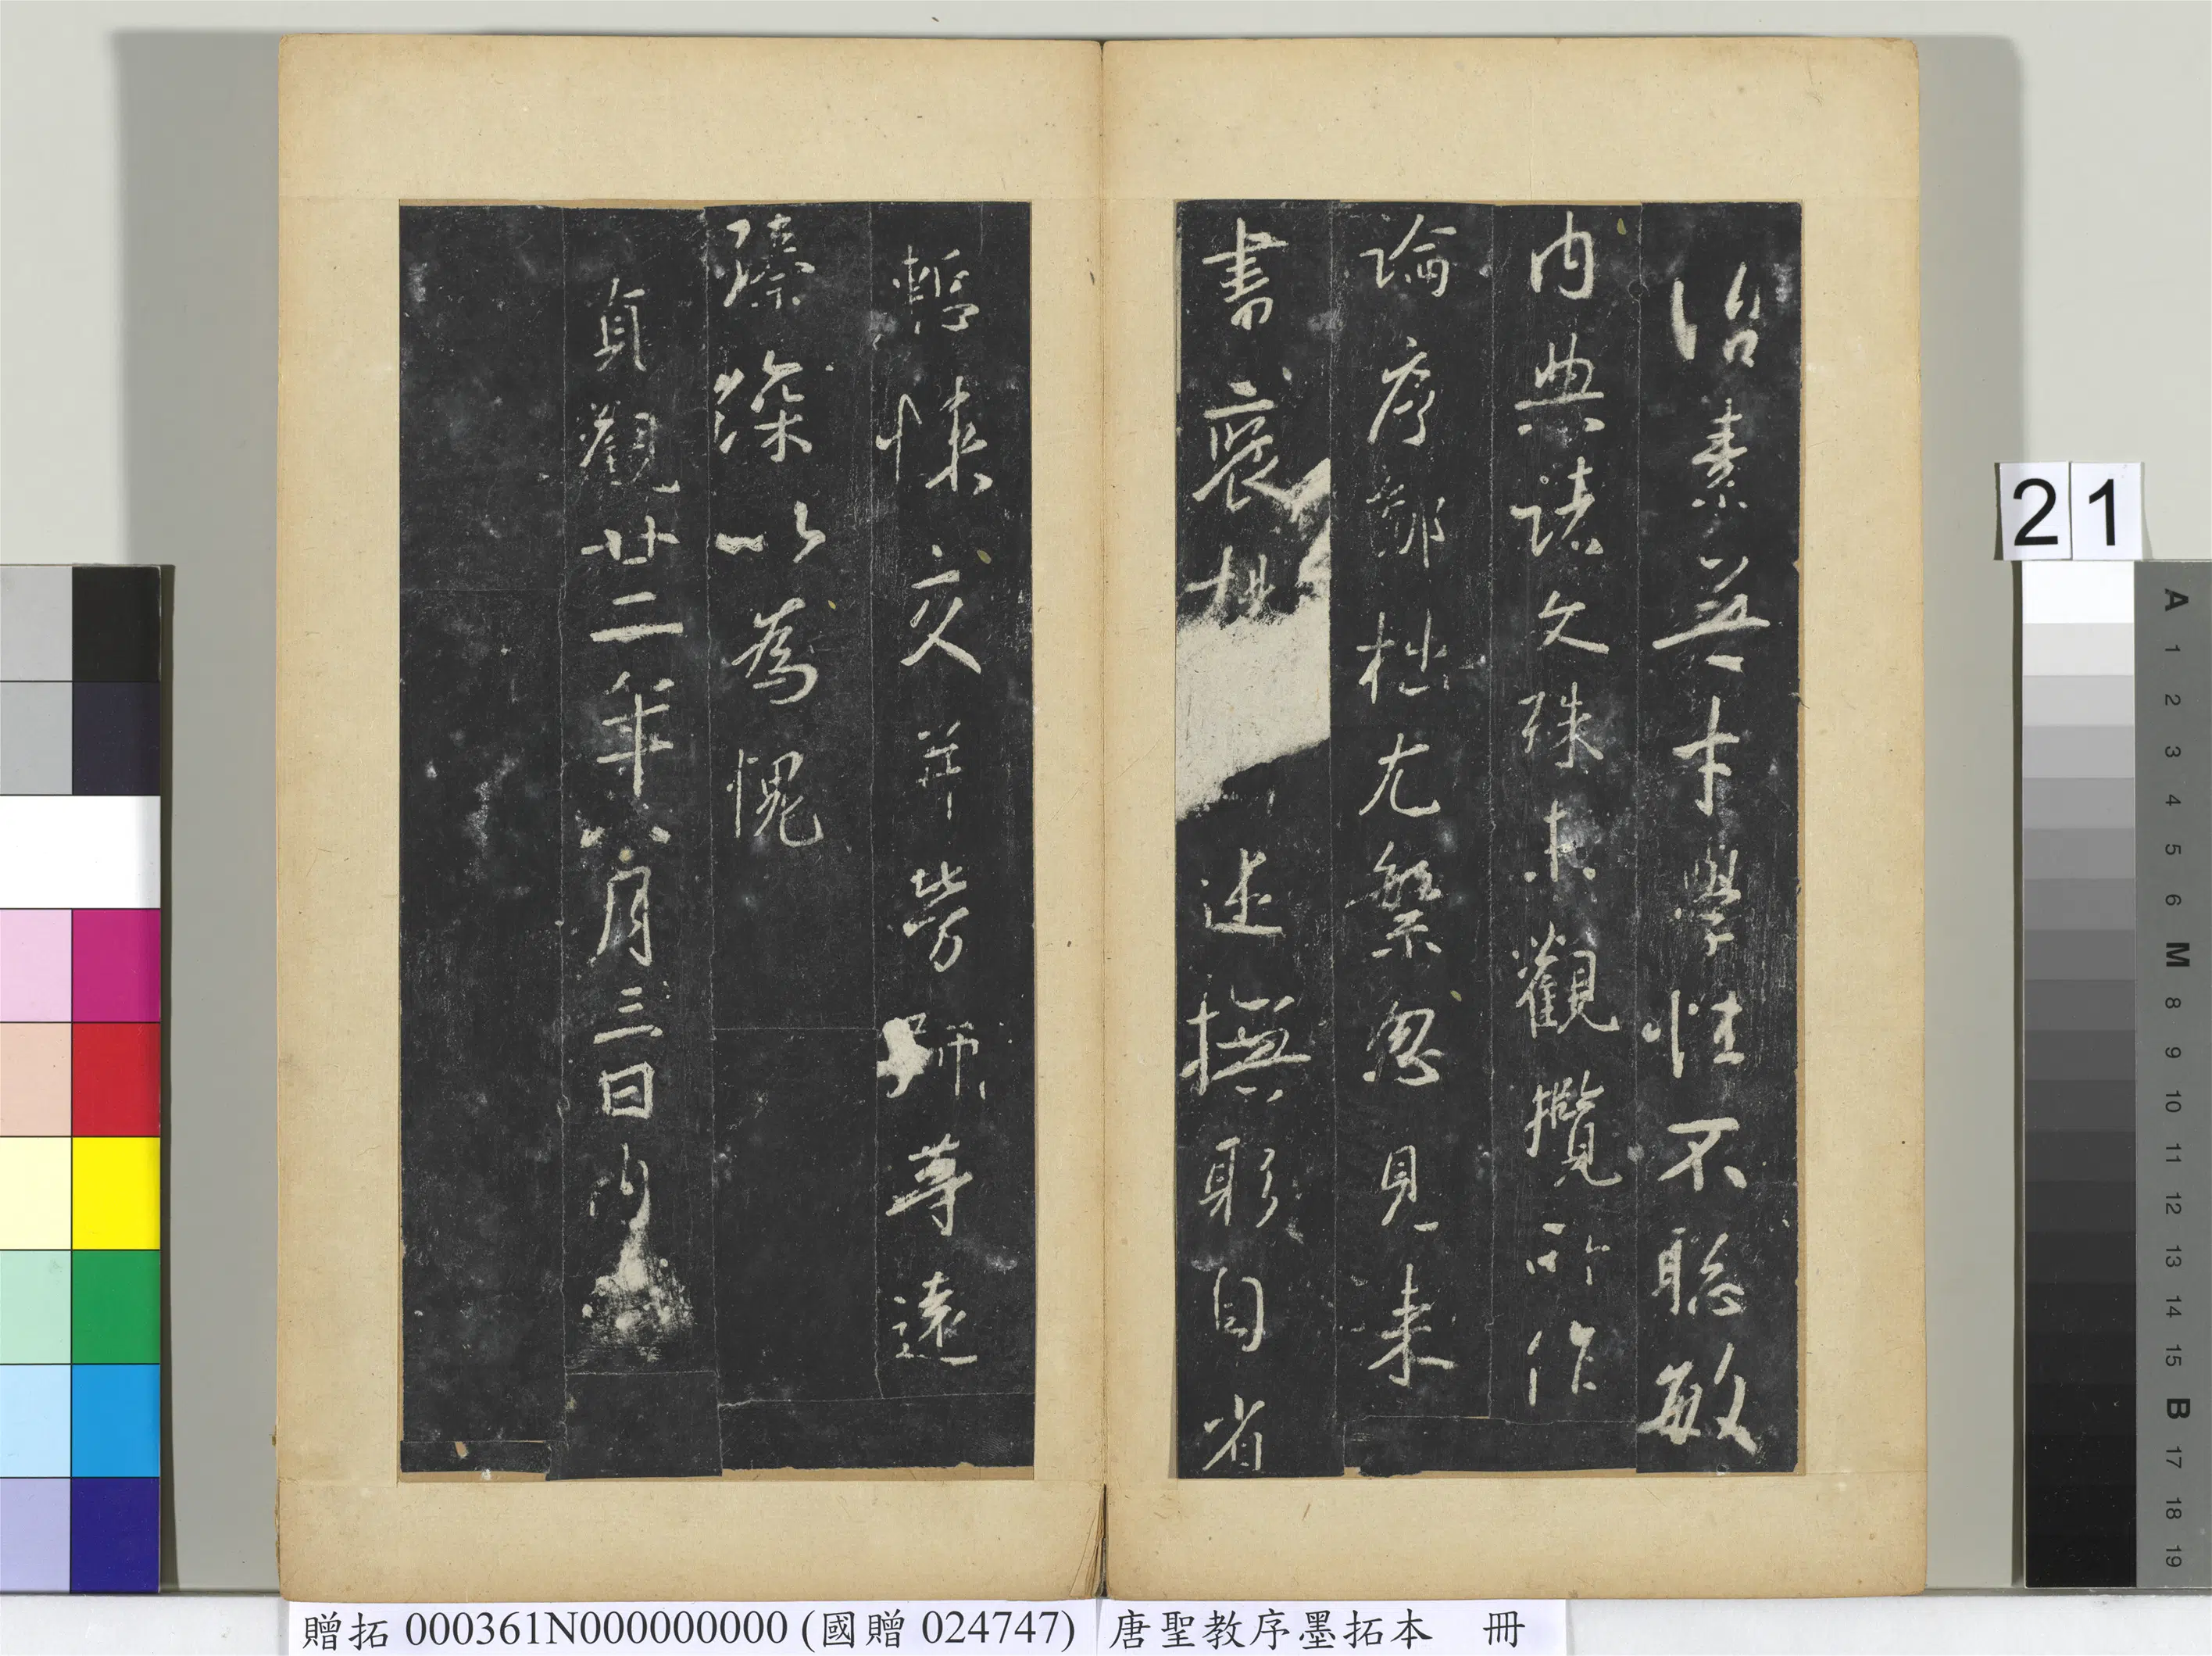 治素無才學性不聰敏
內典諸文殊未觀攬所作
論序鄙拙尤繁忽見來
書褒揚 述撫躬自省
慙悚交並勞師等遠
臻深以為愧
貞觀廿二年八月三日內
21
A
1
2
3
4
5
6
M
8
9
10
11
12
13
14
15
B
17
18
19
贈拓 000361N000000000 (國贈 024747)
唐聖教序墨拓本 冊